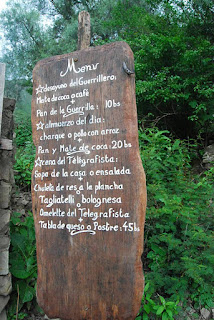 Menu
☆desayuno del Guerrillero,
Mate de coca o café
+
Pan de la Guerrilla : 10bs
☆almuerzo del dia:
charque o pollo con arroz
+
Pan y Mate de coca:20bs
☆cena del Telegrafista:
Sopa de la casa o ensalada
+
Chuleta de res a la plancha
o
Tagliatelli bolognesa
o
Omelette del Telegrafista
+
Tabla de queso o Postre:45bs